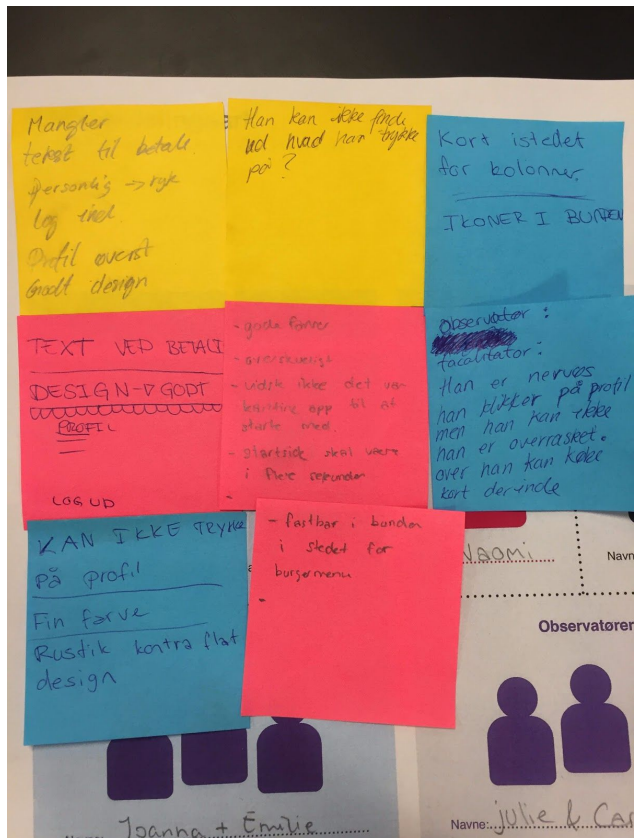 Mangler
tekst til betale
personlig -> ryk
log ind
Profil øverst
Godt design
Han kan ikke finde
ud hvad han trykke
på?
Kort istedet
for kolonner
IKONER I BUNDEN
TEXT VED BETALI
DESIGN-> GODT
PROFIL
LOG UD
- gode farver
- overskueligt
- vidste ikke det var
app til at
starte med
- startside skal være
i flere sekunder
-
observatør :
facilitator :
Han er nervøs
han klikker på profil
men han kan ikke
han er overrasket.
over han kan købe
kort derinde
KAN IKKE TRYKKE
på profil
Fin farve
Rustik kontra flat
design
- fastbar i bunden
i stedet for
burgermenu
-
NAOMI
Navn
Observatører
Joanna + Emilie
Navne: julie & Car